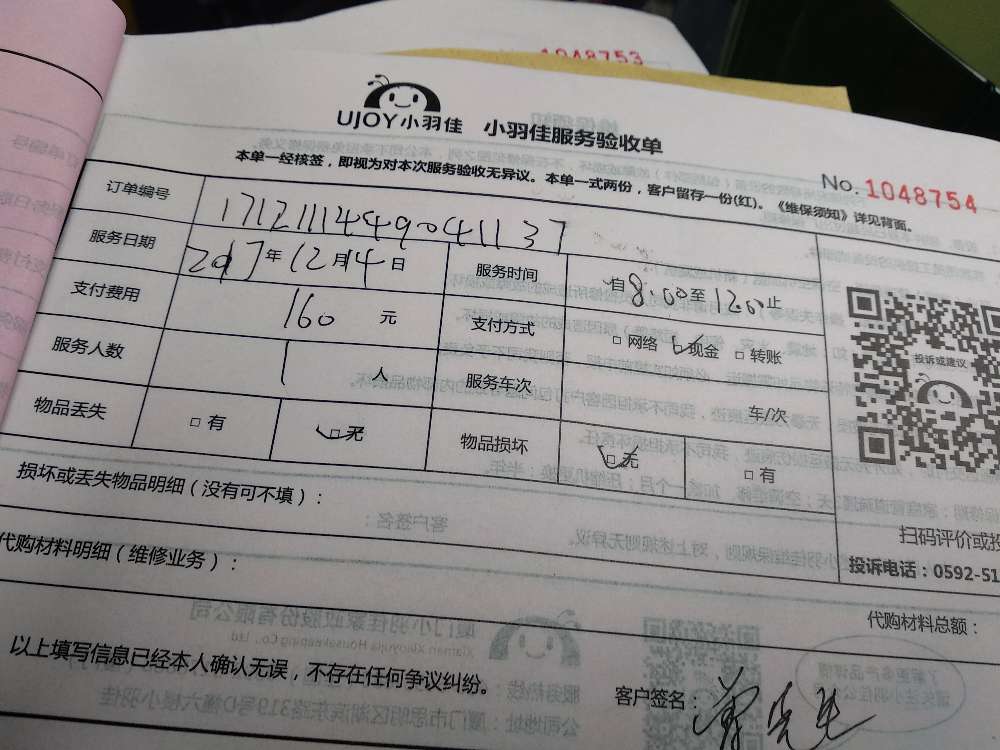 1048753
UJOY小羽佳 小羽佳服务验收单
No. 1048754
本单一经核签，即视为对本次服务验收无异议。本单一式两份，客户留存一份(红)。《维保须知》详见背面。
订单编号 171211144904 1137
服务日期 2017年12月4日 服务时间 自8:00至12:00止
支付费用 160 元 支付方式 □网络 ☑现金 □转账
服务人数 1 人 服务车次 车/次
物品丢失 □有 ☑无 物品损坏 ☑无 □有
投诉或建议
损坏或丢失物品明细（没有可不填）：
扫码评价或投
代购材料明细（维修业务）：
投诉电话：0592-51
代购材料总额：
以上填写信息已经本人确认无误，不存在任何争议纠纷。
客户签名：